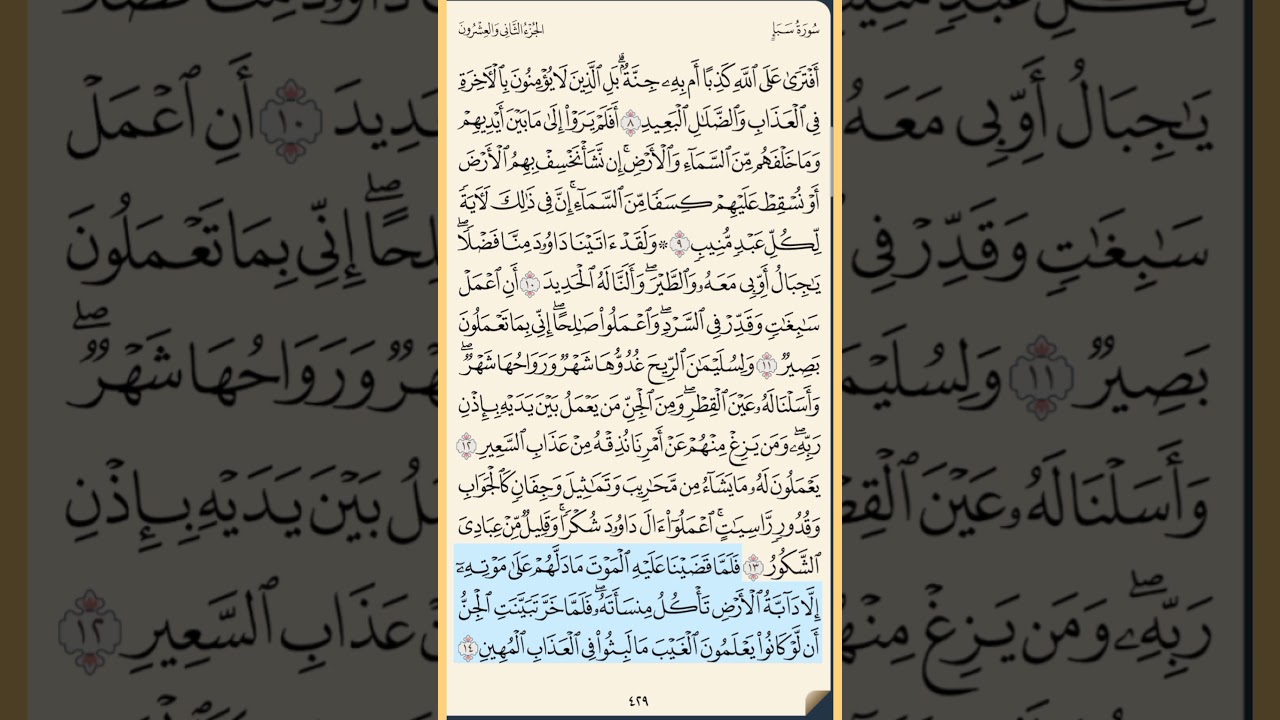 سُورَةُ سَبَإٍ
الجُزْءُ الثَّانِي وَالعِشْرُونَ
أَفْتَرَىٰ عَلَى ٱللَّهِ كَذِبًا أَم بِهِۦ جِنَّةُۢۗ بَلِ ٱلَّذِينَ لَا يُؤْمِنُونَ بِٱلْأٓخِرَةِ
فِى ٱلْعَذَابِ وَٱلضَّلَٰلِ ٱلْبَعِيدِ ٨ أَفَلَمْ يَرَوْا۟ إِلَىٰ مَا بَيْنَ أَيْدِيهِمْ
وَمَا خَلْفَهُم مِّنَ ٱلسَّمَآءِ وَٱلْأَرْضِۚ إِن نَّشَأْ نَخْسِفْ بِهِمُ ٱلْأَرْضَ
أَوْ نُسْقِطْ عَلَيْهِمْ كِسَفًا مِّنَ ٱلسَّمَآءِۚ إِنَّ فِى ذَٰلِكَ لَأٓيَةً
لِّكُلِّ عَبْدٍ مُّنِيبٍ ٩ ۞ وَلَقَدْ ءَاتَيْنَا دَاوُۥدَ مِنَّا فَضْلًاۖ
يَٰجِبَالُ أَوِّبِى مَعَهُۥ وَٱلطَّيْرَۖ وَأَلَنَّا لَهُ ٱلْحَدِيدَ ١٠ أَنِ ٱعْمَلْ
سَٰبِغَٰتٍ وَقَدِّرْ فِى ٱلسَّرْدِۖ وَٱعْمَلُوا۟ صَٰلِحًاۖ إِنِّى بِمَا تَعْمَلُونَ
بَصِيرٌ ١١ وَلِسُلَيْمَٰنَ ٱلرِّيحَ غُدُوُّهَا شَهْرٌ وَرَوَاحُهَا شَهْرٌۖ
وَأَسَلْنَا لَهُۥ عَيْنَ ٱلْقِطْرِۖ وَمِنَ ٱلْجِنِّ مَن يَعْمَلُ بَيْنَ يَدَيْهِ بِإِذْنِ
رَبِّهِۦۖ وَمَن يَزِغْ مِنْهُمْ عَنْ أَمْرِنَا نُذِقْهُ مِنْ عَذَابِ ٱلسَّعِيرِ ١٢
يَعْمَلُونَ لَهُۥ مَا يَشَآءُ مِن مَّحَٰرِيبَ وَتَمَٰثِيلَ وَجِفَانٍ كَٱلْجَوَابِ
وَقُدُورٍ رَّاسِيَٰتٍۚ ٱعْمَلُوٓا۟ ءَالَ دَاوُۥدَ شُكْرًاۚ وَقَلِيلٌ مِّنْ عِبَادِىَ
ٱلشَّكُورُ ١٣ فَلَمَّا قَضَيْنَا عَلَيْهِ ٱلْمَوْتَ مَا دَلَّهُمْ عَلَىٰ مَوْتِهِۦٓ
إِلَّا دَآبَّةُ ٱلْأَرْضِ تَأْكُلُ مِنسَأَتَهُۥۖ فَلَمَّا خَرَّ تَبَيَّنَتِ ٱلْجِنُّ
أَن لَّوْ كَانُوا۟ يَعْلَمُونَ ٱلْغَيْبَ مَا لَبِثُوا۟ فِى ٱلْعَذَابِ ٱلْمُهِينِ ١٤
٤٢٩